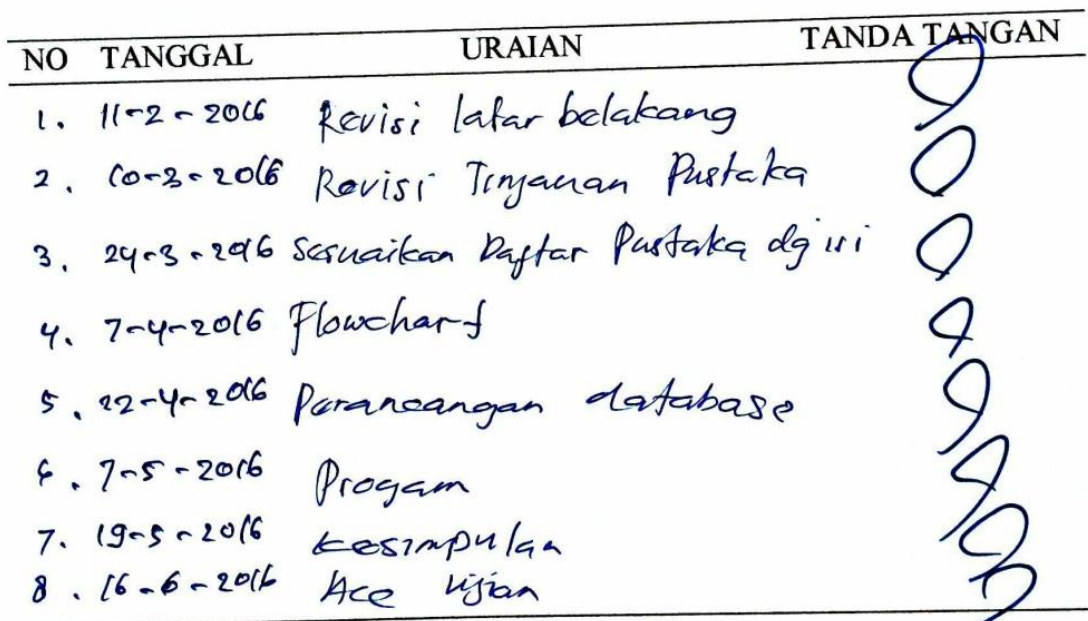 NO TANGGAL URAIAN TANDA TANGAN
1. 11-2-2016 Revisi latar belakang
2. 10-3-2016 Revisi Tinjauan Pustaka
3. 24-3-2016 Sesuaikan Daftar Pustaka dg isi
4. 7-4-2016 Flowchart
5. 22-4-2016 Perancangan database
6. 7-5-2016 Progam
7. 19-5-2016 Kesimpulan
8. 16-6-2016 Acc Ujian